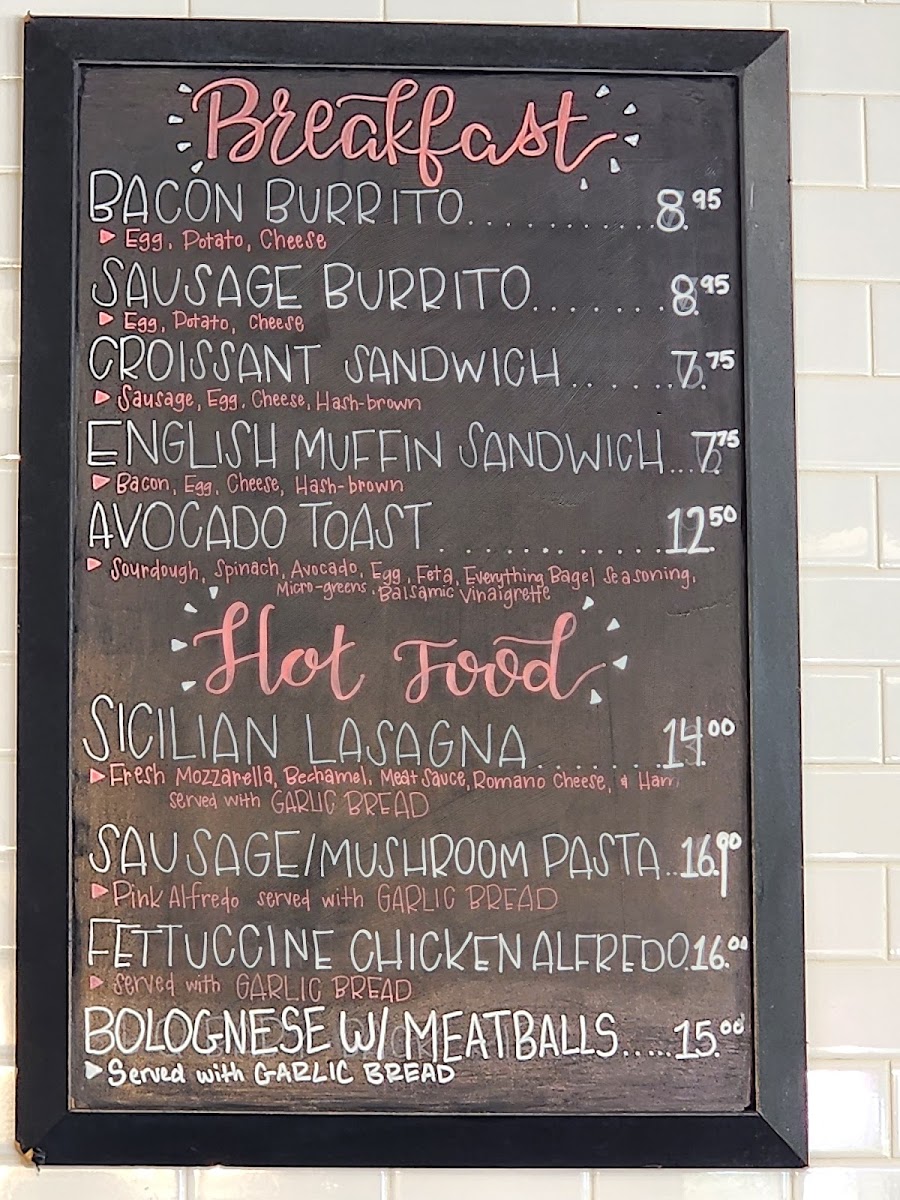 Breakfast
BACON BURRITO........... 8.95
Egg, Potato, Cheese
SAUSAGE BURRITO....... 8.95
Egg, Potato, Cheese
CROISSANT SANDWICH...... 7.75
Sausage, Egg, Cheese, Hash-brown
ENGLISH MUFFIN SANDWICH... 7.75
Bacon, Egg, Cheese, Hash-brown
AVOCADO TOAST............ 12.50
Sourdough, Spinach, Avocado, Egg, Feta, Everything Bagel Seasoning,
Micro-greens, Balsamic Vinaigrette
Hot Food
SICILIAN LASAGNA....... 14.00
Fresh Mozzarella, Bechamel, Meat Sauce, Romano Cheese, & Ham
served with GARLIC BREAD
SAUSAGE/MUSHROOM PASTA.. 16.90
Pink Alfredo served with GARLIC BREAD
FETTUCCINE CHICKEN ALFREDO. 16.00
served with GARLIC BREAD
BOLOGNESE W/ MEATBALLS..... 15.00
Served with GARLIC BREAD